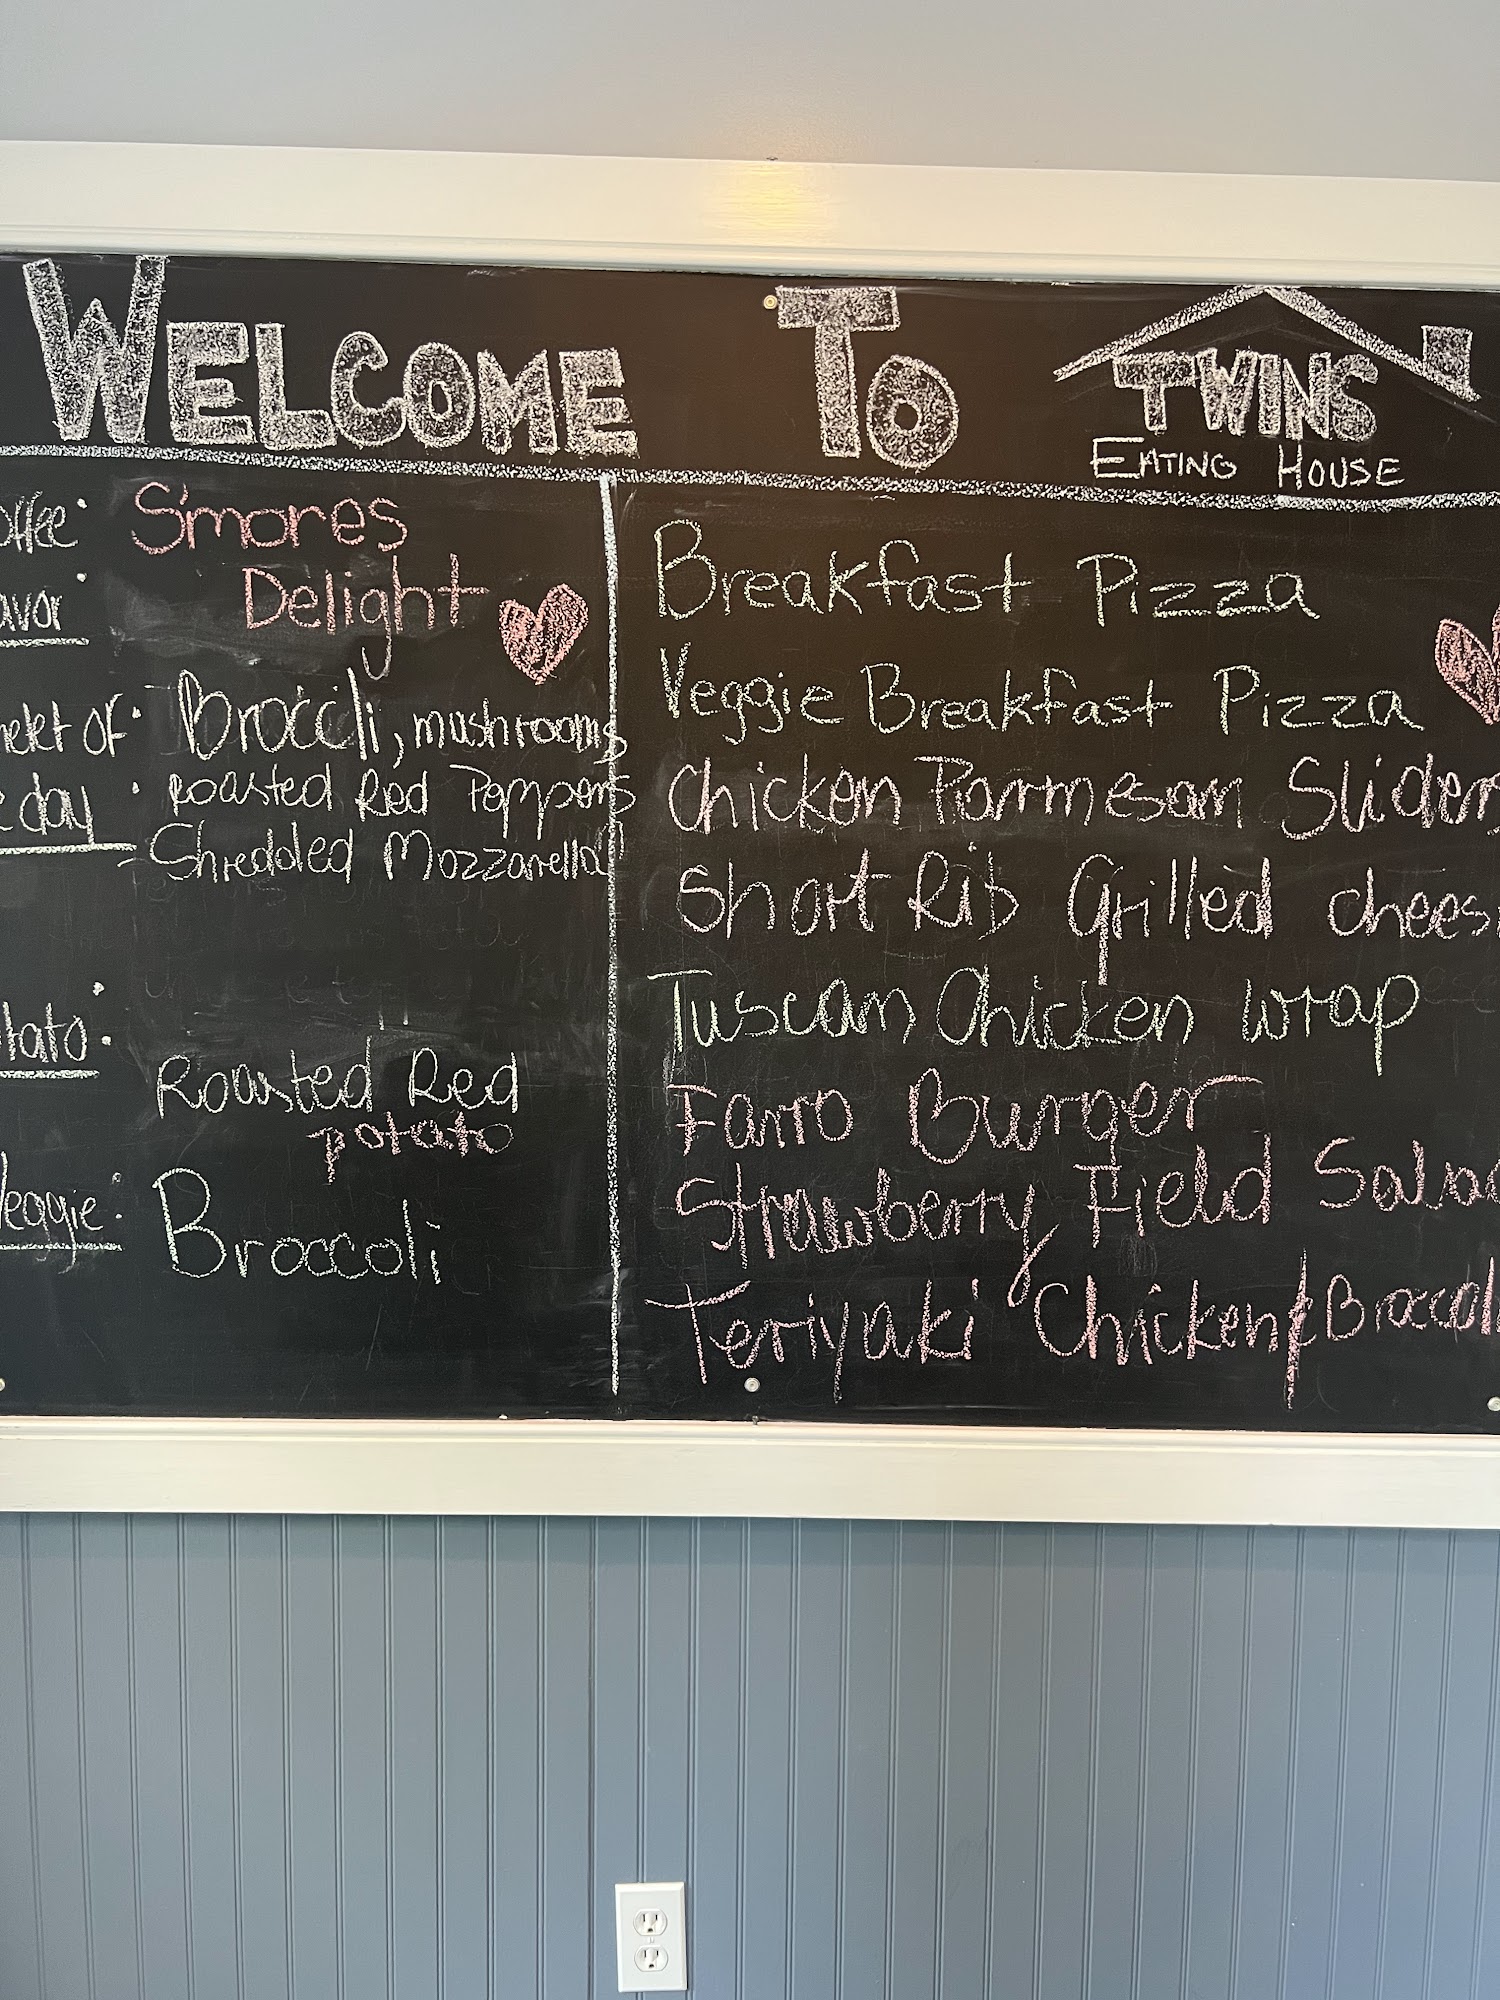 WELCOME TO TWINS
EATING HOUSE
offee: S'mores
avor Delight
melet of: Broccili, mushrooms
e day : Roasted Red Peppers
- Shredded Mozzarella
tato:
Roasted Red
potato
Veggie: Broccoli
Breakfast Pizza
Veggie Breakfast Pizza
Chicken Parmesan Sliders
Short Rib Grilled chees
Tuscan Chicken wrap
Farro Burger
Strawberry Field Sala
Teriyaki Chicken & Broccoli